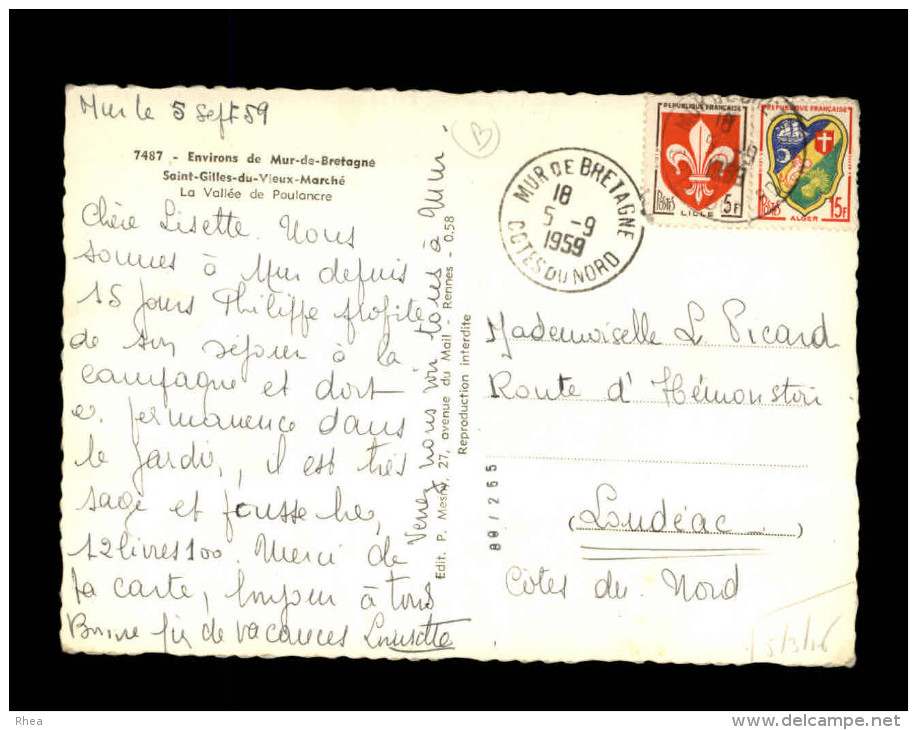 Mur le 5 Sept 59
7487 - Environs de Mur-de-Bretagne
Saint-Gilles-du-Vieux-Marché
La Vallée de Poulancre
Chère Lisette. Nous
sommes à Mur depuis
15 jours Philippe profite
de son séjour à la
campagne et dort
en permanence dans
le jardin, il est très
sage et pousse bien,
12 livres 100. Merci de
ta carte, bonjour à tous
Bonne fin de vacances Louisette
Venez nous voir tous à Mur
Edit. P. Mesny, 27, avenue du Mail - Rennes - 0.58
Reproduction interdite
B
MUR DE BRETAGNE
18
5 - 9
1959
COTES DU NORD
REPUBLIQUE FRANÇAISE
POSTES
5F
LILLE
REPUBLIQUE FRANÇAISE
POSTES
15F
ALGER
Mademoiselle L. Picard
Route d'Hémonstoir
(Loudéac)
Côtes du Nord
Rhea
www.delcampe.net